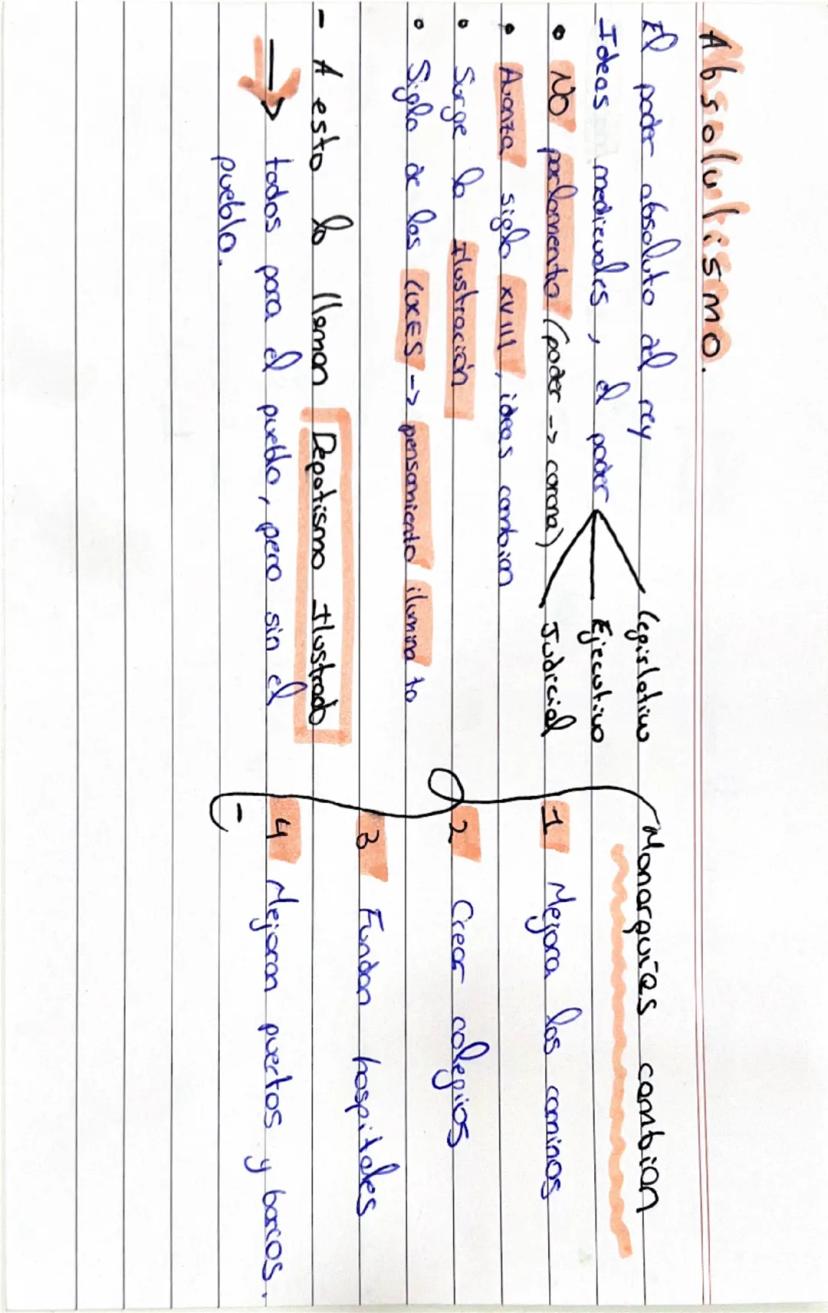 Absolutismo.
El poder absoluto al rey
Ideas medievales, el poder
Legislativo
Ejecutivo
Judicial
• No parlamento (poder -> corona)
• Avanza siglo XVIII, ideas cambian
• Surge la Ilustración
• Siglo de las LUCES -> pensamiento ilumina to
- A esto lo llaman Depotismo Ilustrado
→ todos para el pueblo, pero sin el
pueblo.
Monarquías cambian
1 Mejora los caminos
2 Crear colegios
3 Fundan hospitales
4 Mejoran puertos y barcos.
-